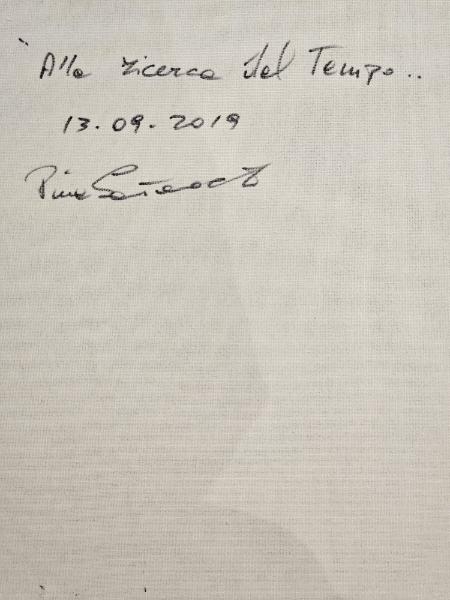 Alla ricerca del Tempo..
13.09.2019